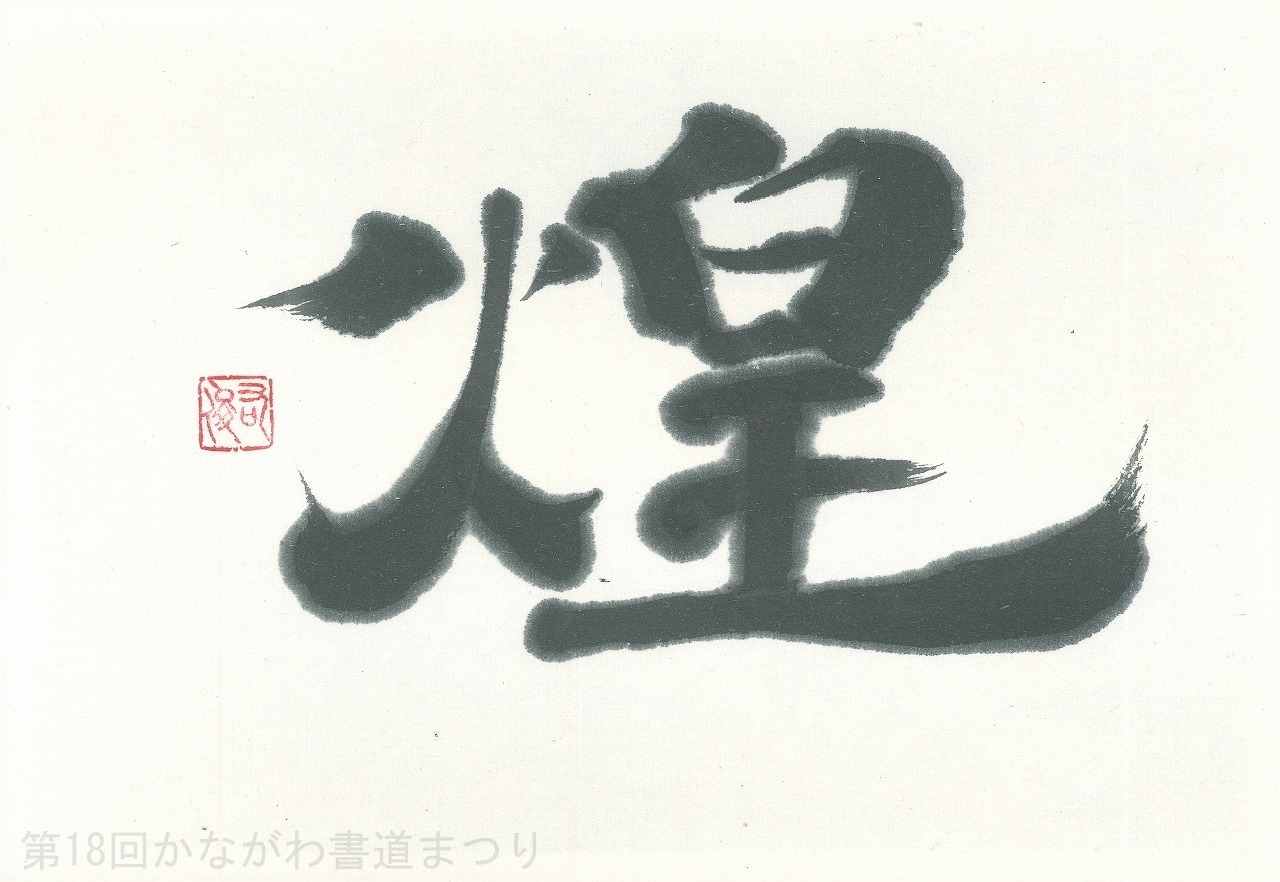 煌
第18回かながわ書道まつり